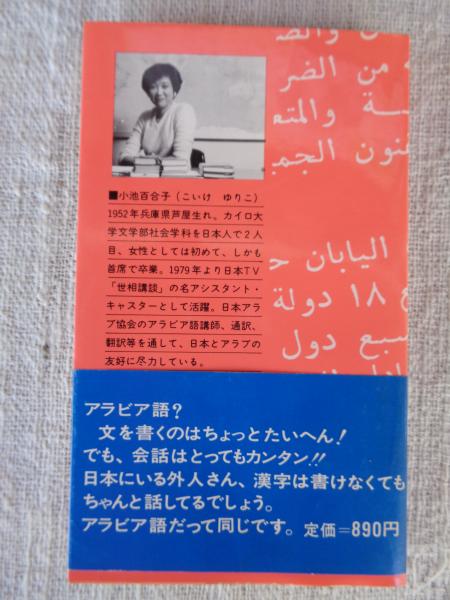 ن والض
ة من الضر
ـة والمتع
فنون الجميـ
اليابان حـ
ع ١٨ دولة
سبع دول
■小池百合子(こいけ ゆりこ)
1952年兵庫県芦屋生れ。カイロ大
学文学部社会学科を日本人で2人
目、女性としては初めて、しかも
首席で卒業。1979年より日本TV
「世相講談」の名アシスタント・
キャスターとして活躍。日本アラ
ブ協会のアラビア語講師、通訳、
翻訳等を通して、日本とアラブの
友好に尽力している。
アラビア語?
文を書くのはちょっとたいへん!
でも、会話はとってもカンタン!!
日本にいる外人さん、漢字は書けなくても
ちゃんと話してるでしょう。
アラビア語だって同じです。 定価=890円